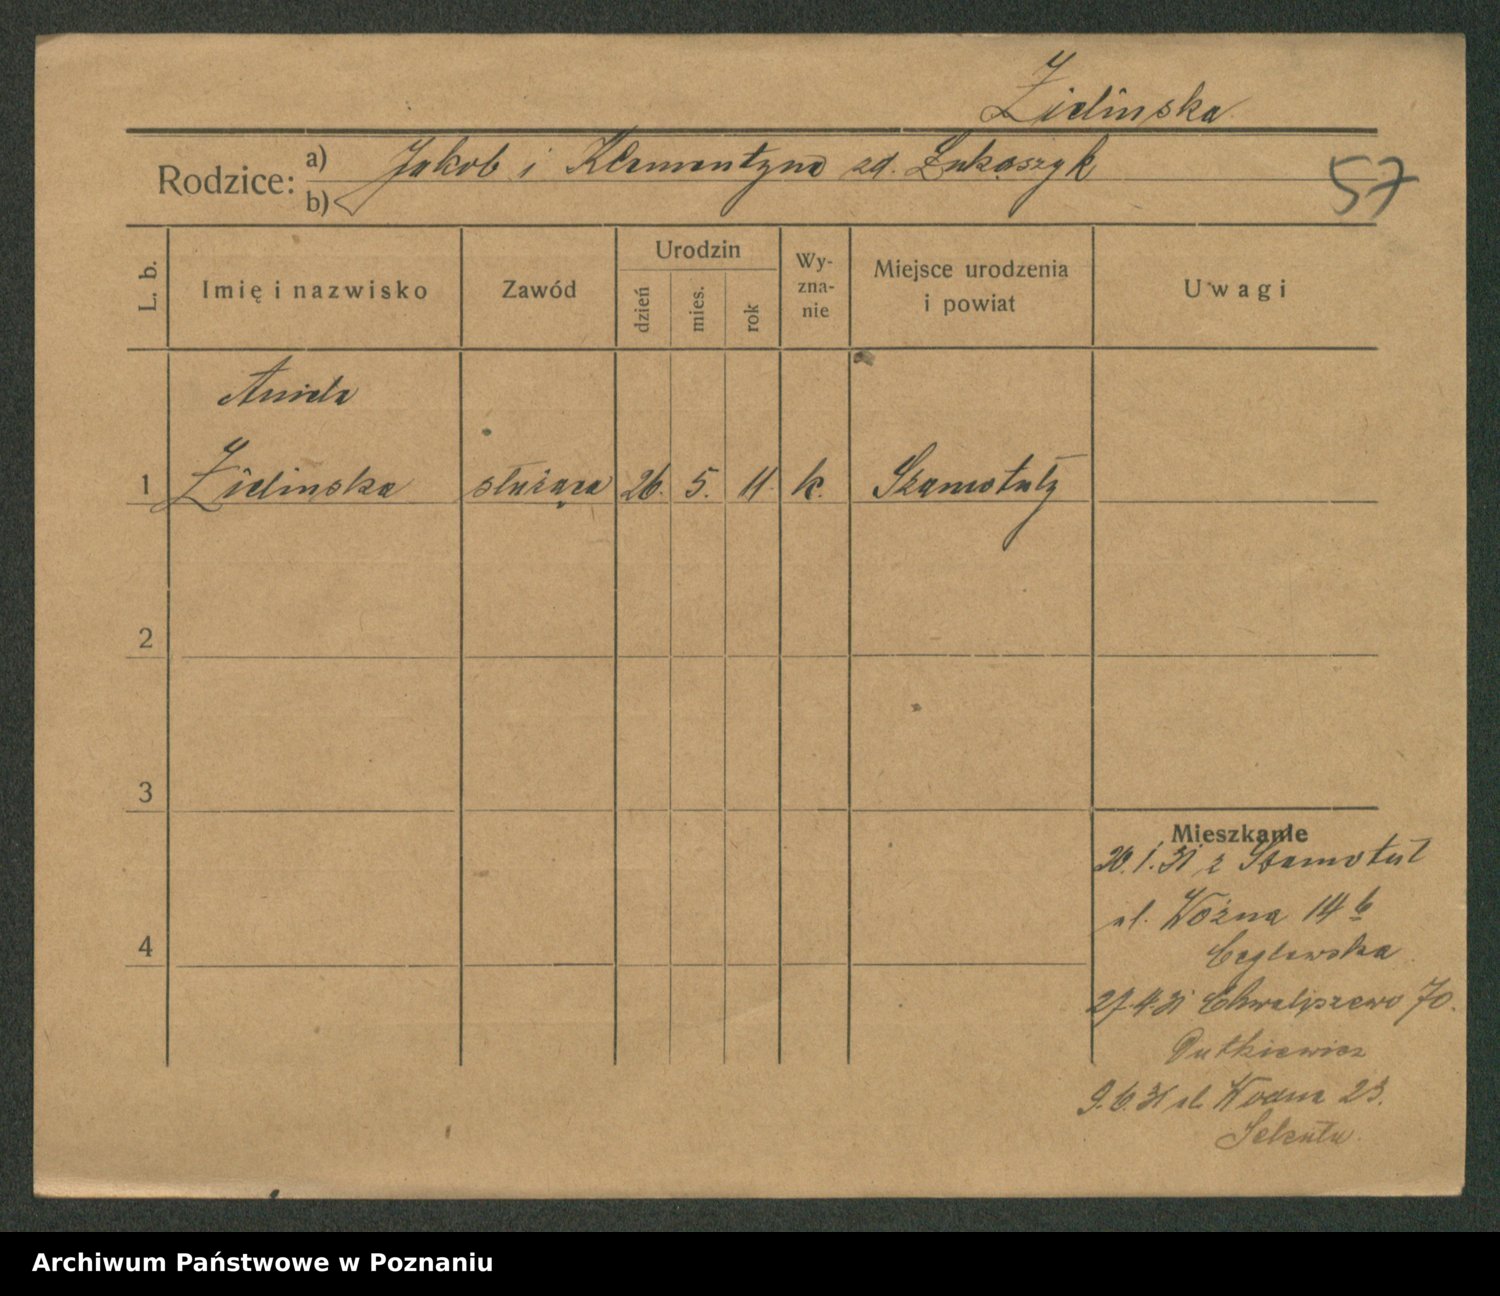 Zielinska
Rodzice: a) Jakob i Klementyna zd. Łukaszyk
b)
57
L. b. Imię i nazwisko Zawód Urodzin dzień mies. rok Wyznanie Miejsce urodzenia i powiat Uwagi
Aniela
1 Zielinska służąca 26. 5. 11 k. Szamotuły
2
3
4
Mieszkanie
20.1.31 z Szamotuł
ul. Woźna 14 b
Ceglewska
27.4.31 Chwaliszewo 70.
Dutkiewicz
9.6.31 ul. Wodna 23.
Archiwum Państwowe w Poznaniu